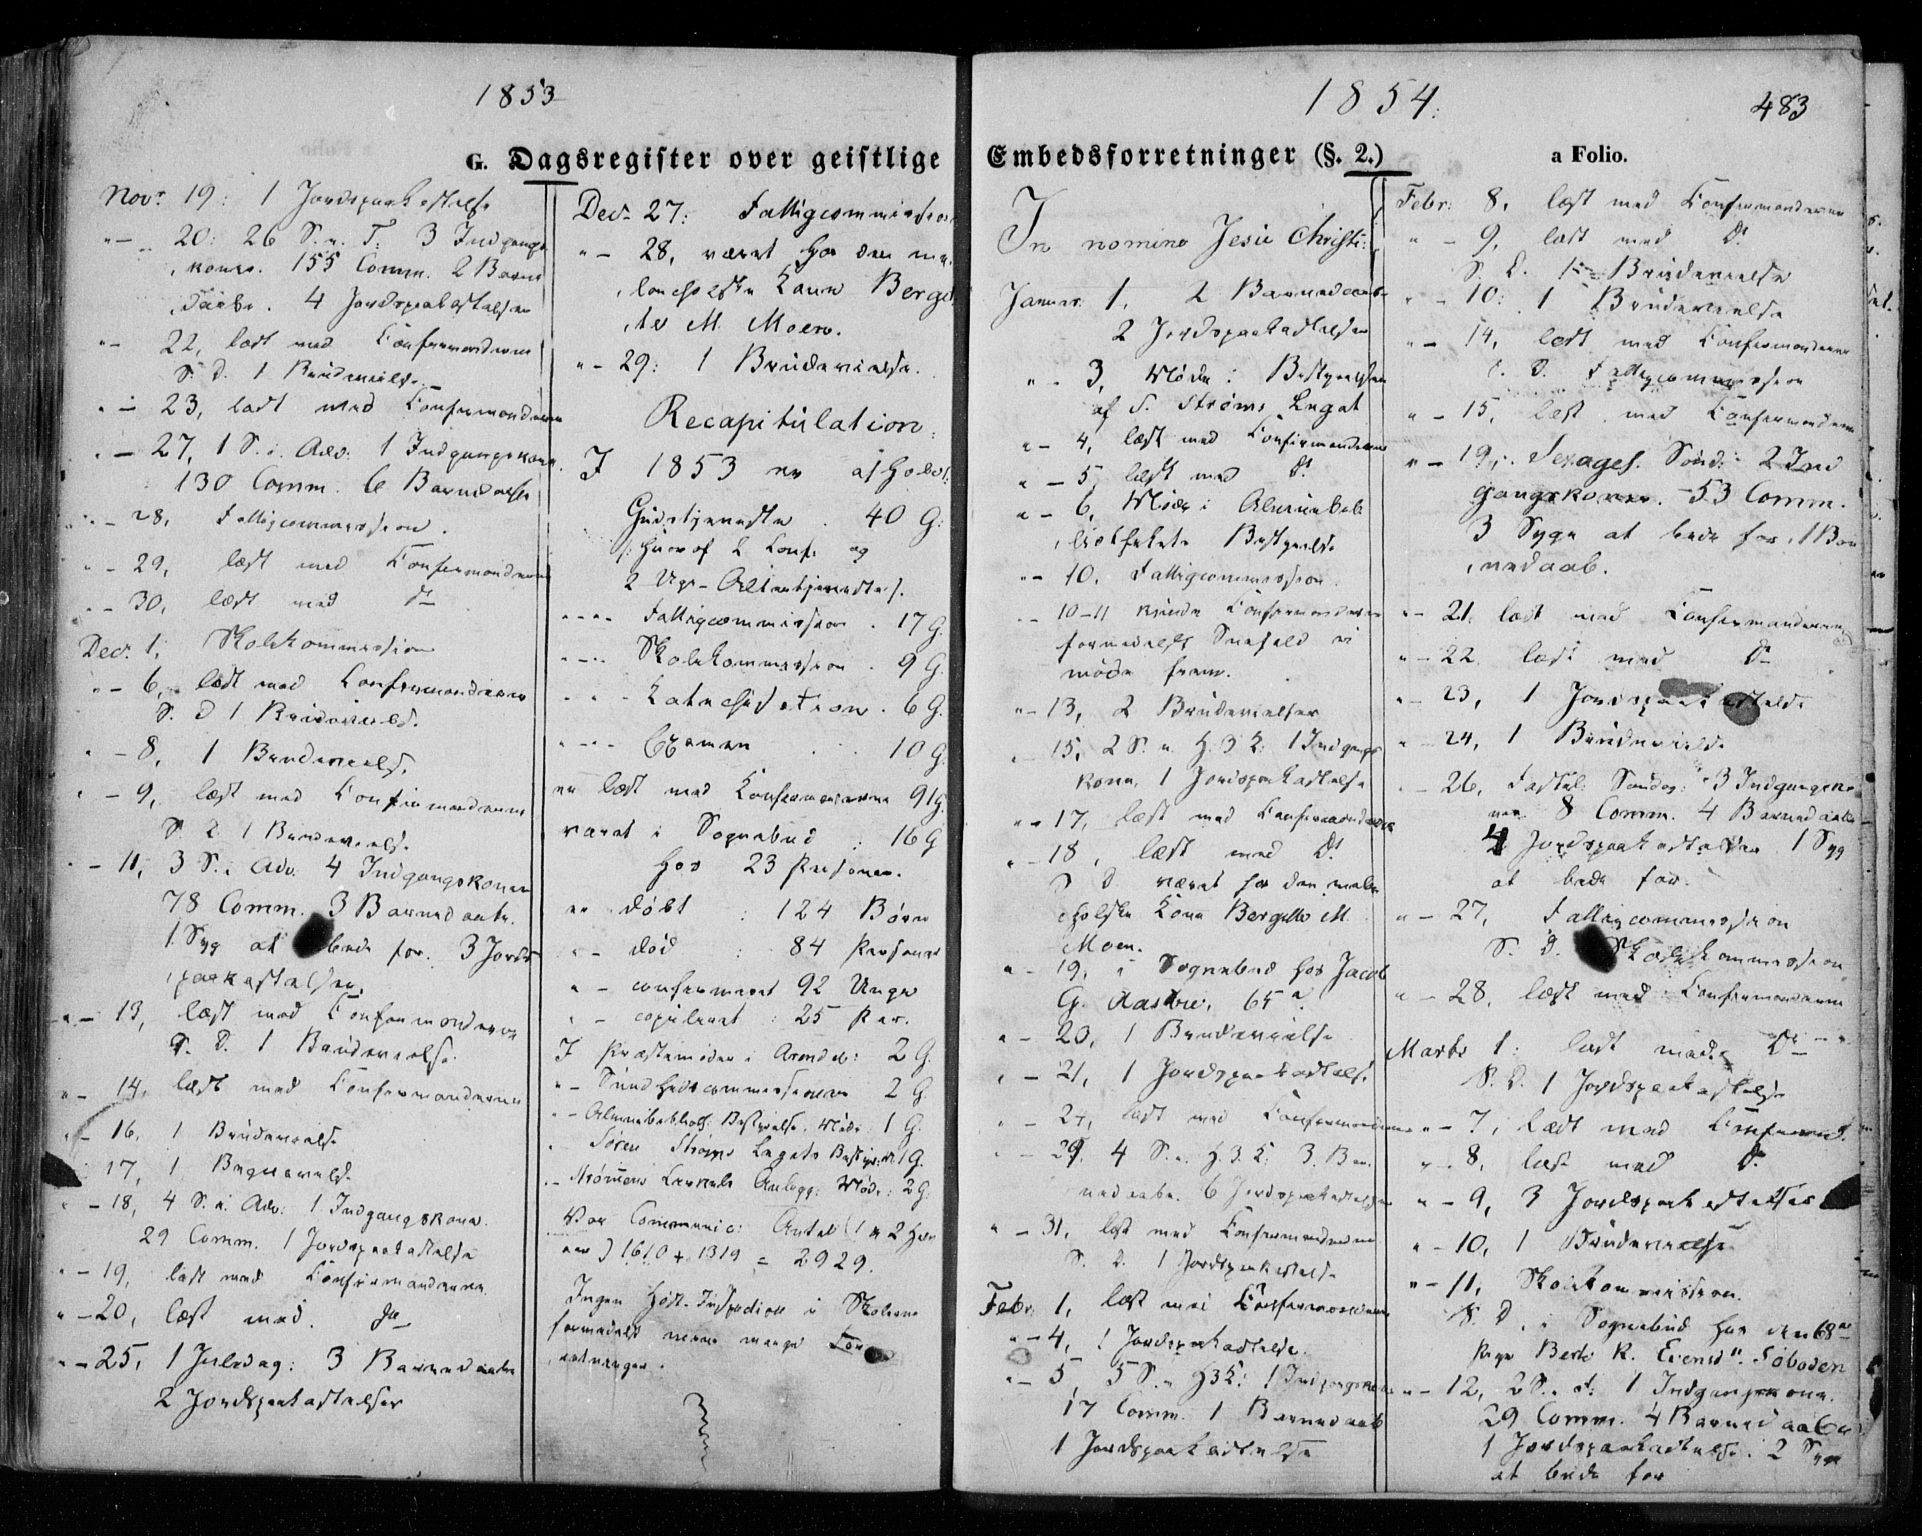 1853
G. Dagsregister over geistlige
Novr 19: 1 Jordspaakastelse
"– 20: 26 S. e. T. 3 Indgangs
koner. 155 Comm. 2 Barne
daabe. 4 Jordspaakastelser
"– 22, læst med Confirmanderne
S. D. 1 Brudevielse
"– 23, læst med Confirmanderne
"– 27, 1 S. i Adv. 1 Indgangskone
130 Comm. 6 Barnedaabe
"– 28, Fattigcommission.
"– 29, læst med Confirmanderne
"– 30, læst med Do
Decr 1, Skolekommission
"– 6, læst med Confirmanderne
S. D. 1 Brudevielse.
"– 8, 1 Brudevielse.
"– 9, læst med Confirmanderne
S. D. 1 Brudevielse.
"– 11, 3 S. i Adv. 4 Indgangskoner
78 Comm. 3 Barnedaabe.
1 Syg at bede for. 3 Jords
paakastelser.
"– 13, læst med Confirmanderne
S. D. 1 Brudevielse.
"– 14, læst med Confirmanderne
"– 16, 1 Brudevielse
17, 1 Brudevielse
"– 18, 4 S. i Adv: 1 Indgangskone.
29 Comm. 1 Jordspaakastelse
"– 19, læst med Confirmanderne
"– 20, læst med. Do
"– 25, 1 Juledag: 3 Barnedaabe
2 Jordspaakastelser
Decr 27: Fattigcommission
"– 28, været hos den me
lancholske Kone Berget
te M. Moen.
"– 29: 1 Brudevielse.
Recapitulation:
I 1853 er afholdt
Gudstjeneste . 40 G:
/: hvoraf 2 Conf. og
2 Uge-Altertjeneste /.
"– Fattigcommission . 17 G.
"– Skolekommission . 9 G.
"– Katechisation . 6 G.
"– Examen . . 10 G.
er læst med Confirmanderne 91 G.
været i Sognebud : 16 G
hos 23 Personer.
er døbt : 124 Børn
"– død : 84 Personer
"– confirmeret 92 Unge
"– copuleret : 25 Par.
I Præstemøder i Arendal: 2 G.
"– Sundhedscommissionen 2 G.
"– Almuebibliotk. Bestyrelse. Møde: 1 G.
Søren Strøms Legats Bestyrelse 1 G.
Anlegg: Møde: 2 G.
Var Communic: Antal (1 2 Hov
) 1610 + 1319 = 2929.
Ingen Høst-Inspection i Skolerne
formedelst mange For
retninger.
1854.
483
Embedsforretninger (§. 2.)
a Folio.
In nomine Jesu Christi:
Januar 1, 2 Barnedaabe
2 Jordspaakastelser
"– 3, Møde i Bestyrelsen
af S. Strøms Legat
"– 4, læst med Confirmanderne
"– 5 læst med Do
"– 6, Møde i Almuebib
liothekets Bestyrelse
"– 10, Fattigcommission.
10–11 kunde Confirmanderne
formedelst Snefald ei
møde frem.
"– 13, 2 Brudevielser
15, 2 S. e. H. 3 K: 1 Indgangs
kone. 1 Jordspaakastelse
"– 17, læst med Confirmanderne
"– 18, læst med Do
S. D. været hos den melan
cholske Kone Bergitte M.
Moen.
"– 19, i Sognebud hos Jacob
G. 65 a.
"– 20, 1 Brudevielse
"– 21, 1 Jordspaakastelse
"– 24, læst med Confirmanderne
"– 29, 4 S. e. H. 3 K: 3 Bar
nedaabe. 6 Jordspaakastelser
"– 31, læst med Confirmanderne
S. D. 1 Jordspaakastelse
Febr: 1, læst med Confirmanderne
"– 4, 1 Jordspaakastelse.
"– 5 5 S. e. H 3 K: 1 Indgangskone
17 Comm. 1 Barnedaab
1 Jordspaakastelse
Febr: 8, læst med Confirmanderne
"– 9, læst med Do
S. D. 1 Brudevielse
"– 10: 1 Brudevielse
"– 14, læst med Confirmanderne
S. D. Fattigcommission
"– 15, læst med Confirmanderne
"– 19, Sexages. Sønd: 2 Ind
gangskoner. 53 Comm.
3 Syge at bede for. 1 Bar
nedaab.
"– 21. læst med Confirmanderne
"– 22. læst med Do
"– 23, 1 Jordspaakastelse
"– 24, 1 Brudevielse
"– 26, Fastel: Søndag: 3 Indgangsko
ner. 8 Comm. 4 Barnedaabe
4 Jordspaakastelser 1 Syg
at bede for.
"– 27, Fattigcommission
S. D. Skolekommission
"– 28, læst med Confirmanderne
Marts 1: læst med Do
S. D. 1 Jordspaakastelse
"– 7, læst med Confirmd.
"– 8, læst med Do
"– 9, 3 Jordspaakastelser
"– 10, 1 Brudevielse
"– 11, Skolekommission.
S. D. i Sognebud hos den 68 ar
Pige Berte K. Eversd". Søboden
"– 12, 2 S. i F: 1 Indgangskone.
29 Comm. 4 Barnedaabe
1 Jordspaakastelse. 2 Syge
at bede for